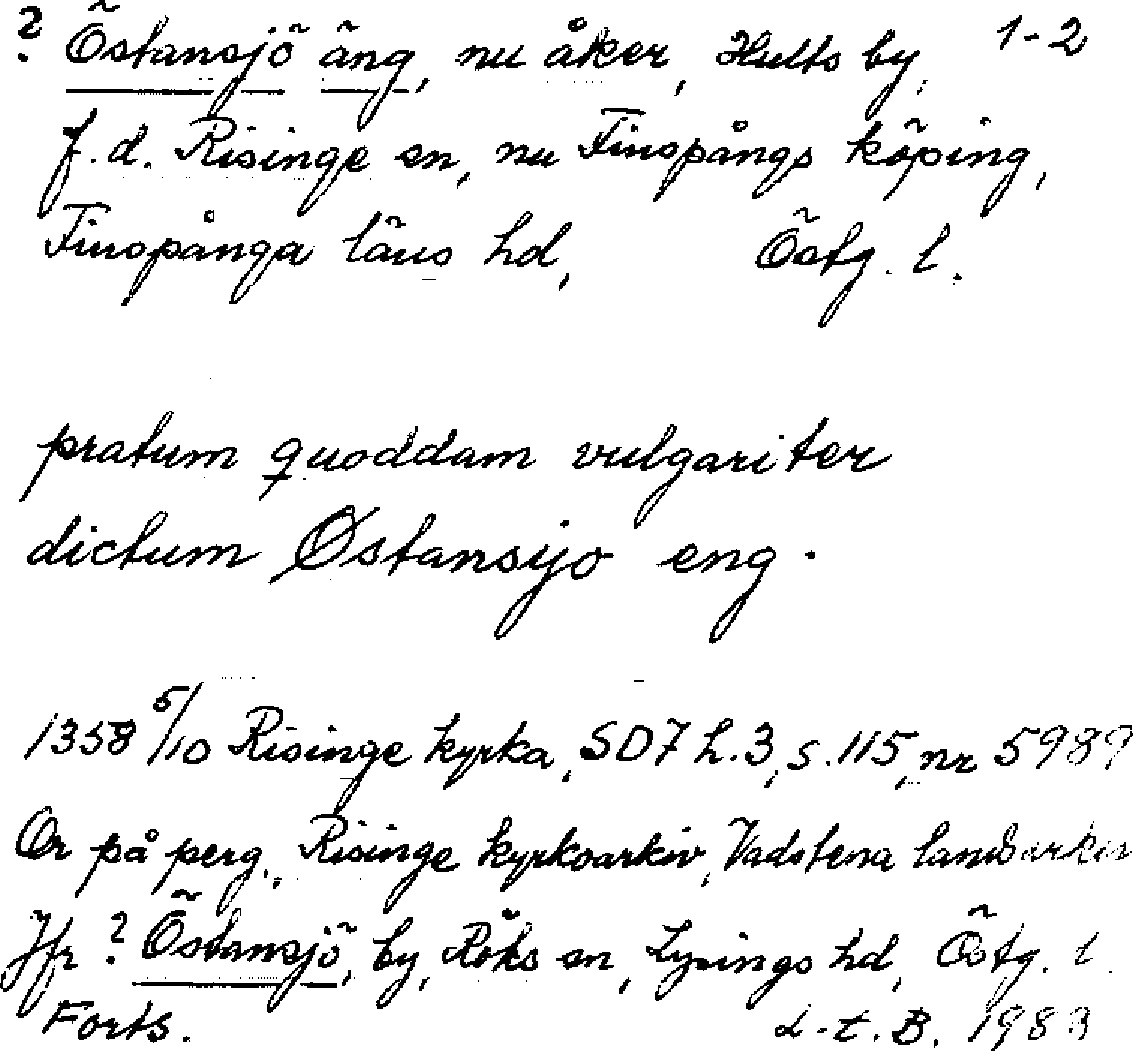 ? Östansjö äng, nu åker, Hults by, 1-2
f.d. Risinge sn, nu Finspångs köping,
Finspånga läns hd, Östg. l.
pratum quoddam vulgariter
dictum Østansijo eng.
1358 5/10 Risinge kyrka, SD7 h.3, s.115, nr 5989
Or på perg., Risinge kyrkoarkiv, Vadstena landsarkiv
Jfr ? Östansjö, by, Röks sn, Lysings hd, Östg. l.
Forts. L-t. B. 1983